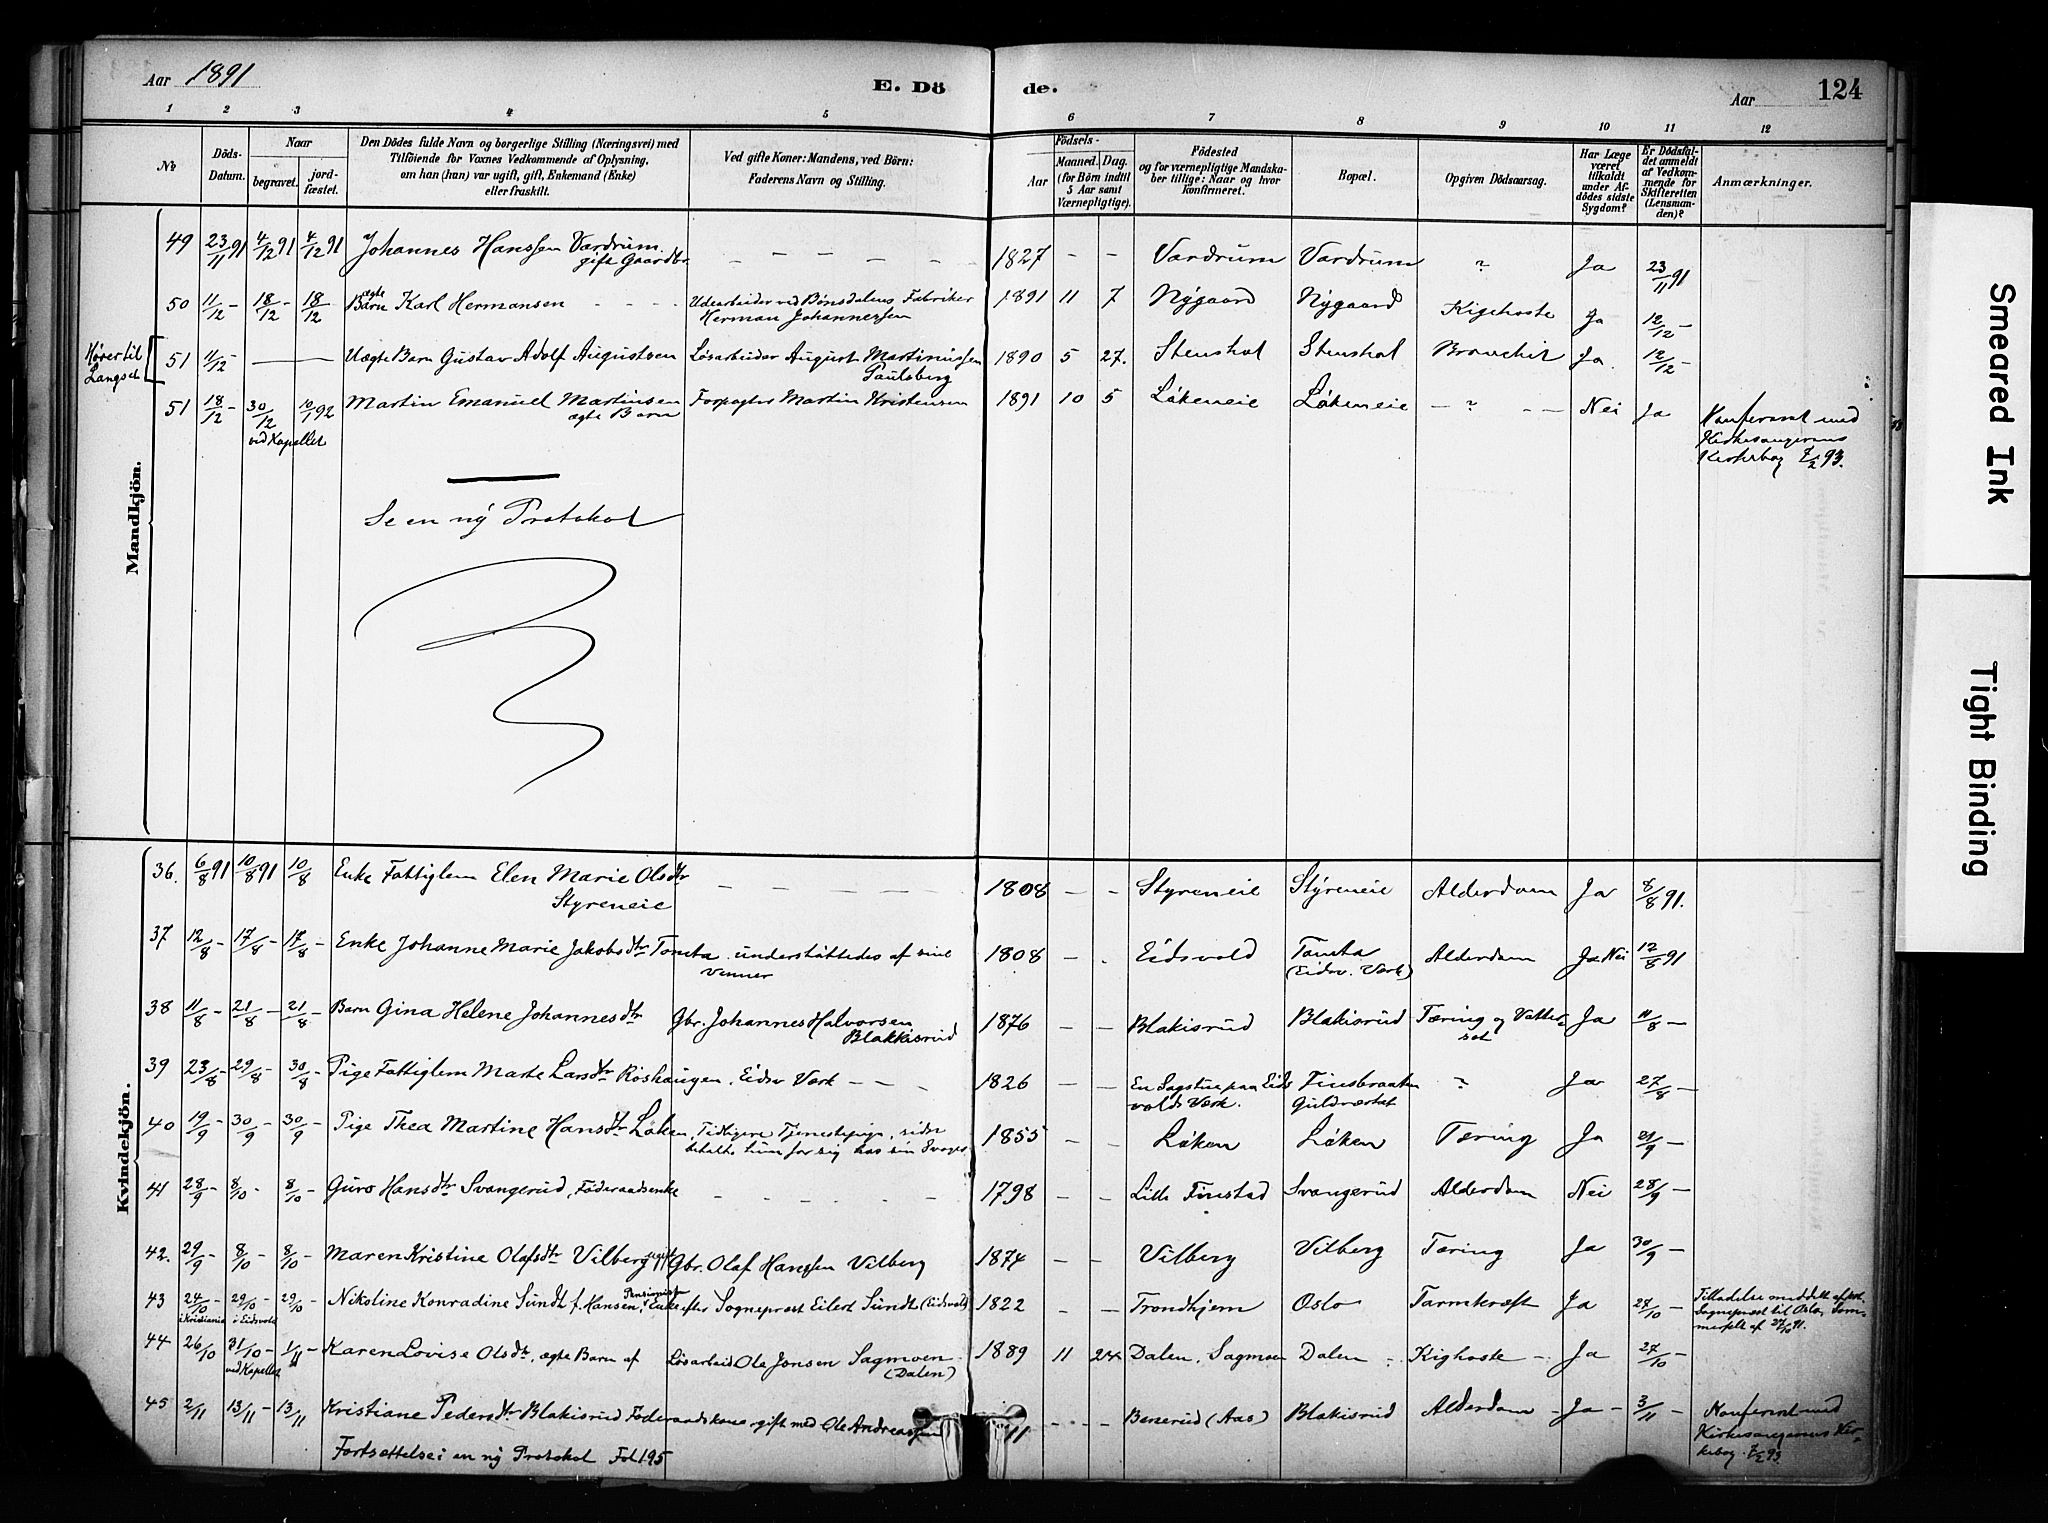 Aar 1891
E. Dö
de.
Aar
124
1 2 3 4 5 6 7 8 9 10 11 12
No
Döds-
Datum.
Naar
begravet.
jord-
fæstet.
Den Dödes fulde Navn og borgerlige Stilling (Næringsvei) med
Tilföiende for Voxnes Vedkommende af Oplysning,
om han (hun) var ugift, gift, Enkemand (Enke)
eller fraskilt.
Ved gifte Koner: Mandens, ved Börn:
Faderens Navn og Stilling.
Födsels-
Aar
Maaned. Dag.
(for Börn indtil
5 Aar samt
Værnepligtige).
Födested
og for værnepligtige Mandska-
ber tillige: Naar og hvor
konfirmeret.
Bopæl.
Opgiven Dödsaarsag.
Har Læge
været
tilkaldt
under Af-
dödes sidste
Sygdom?
Er Dödsfal-
det anmeldt
af Vedkom-
mende for
Skifteretten
(Lensman-
den)?
Anmærkninger.
Mandkjön.
49 23/11 91 4/12 91 4/12 91 Johannes Hanssen Vardrum - - - - - 1827 - - Vardrum Vardrum ? Ja 23/11 91
gift Gaardbr.
50 11/12 - 18/12 - 18/12 ægte Barn Karl Hermansen - - - - Udearbeider ved Bönsdalens Fabriker 1891 11 7 Nygaard Nygaard Kighoste Ja 12/12 -
Herman Johannessen
Hører til
Langset
51 11/12 - Uægte Barn Gustav Adolf Augustsen Løsarbeider August Martinussen 1890 5 27. Stenshol Stenshol Bronchit Ja 12/12 -
Paulsberg
51 18/12 - 30/12 10/1 92 Martin Emanuel Martinsen Forpagter Martin Kristensen 1891 10 5 Løkeneie Løkeneie - ? - - Nei Ja
ved Kapellet
ægte Barn
Konfereret med
Kirkesangerens
Kirkebog 7/2 93.
Se en ny Protokol
Kvindekjön.
36. 6/8 91 10/8 91 10/8 Enke Fattiglem Elen Marie Olsdtr - - - - - 1808 - - Styreneie Styreneie Alderdom Ja 8/8 91.
Styreneie
37 12/8 - 17/8 - 17/8 - Enke Johanne Marie Jakobsdtr Tomta understøttedes af sine 1808 - - Eidsvold Tomta Alderdom Ja Nei 12/8 91
venner
(Eidsv. Værk)
38 11/8 - 21/8 - 21/8 - Barn Gina Helene Johannesdtr Gbr. Johannes Halvorsen 1876 - - Blakisrud Blakisrud Tæring og Vatter- Ja 11/8 -
Blakkisrud
sot
39 23/8 - 29/8 - 30/8 - Pige Fattiglem Marte Larsdtr Röshaugen, Eidsv Værk - - - 1826 - - En Sagstue paa Eids Finsbraaten ? Ja 27/8 -
volds Værk.
Guldværket
40 19/9 - 30/9 - 30/9 - Pige Thea Martine Hansdtr Løken, Tidligere Tjenestepige, siden 1855 - - Løken Løken Tæring Ja 21/9 -
betalte hun for sig hos sin Svoger
41 28/9 - 8/10 - 8/10 - Guro Hansdtr Svangerud, Föderaadsenke - - - - - 1798 - - Lille Finstad Svangerud Alderdom Nei 28/9 -
42. 29/9 - 8/10 - 8/10 - Maren Kristine Olafsdtr Vilberg ugift Gbr. Olaf Hanssen Vilberg 1874 - - Vilberg Vilberg Tæring Ja 30/9 -
43 24/10 - 29/10 - 29/10 - Nikoline Konradine Sundt f. Hansen, Pensionist Enke efter Sogneprest Eilert Sundt (Eidsvold) 1822 - - Trondhjem Oslo Tarmkræft Ja 27/10 -
i Kristiania i Eidsvold
Tilladelse meddelt af
Sogneprest til Oslo, Som-
merfelt af 27/10 91.
44 26/10 31/10 - 1/11 - Karen Lovise Olsdtr, ægte Barn af Løsarbeid. Ole Jonsen Sagmoen 1889 11 24 Dalen, Sagmoen Dalen - Kighoste - Ja 27/10 -
ved Kapellet
(Dalen)
45 2/11 13/11 - 13/11 - Kristiane Pedersdtr Blakisrud Föderaadskone gift med Ole Andreassen 11 - - - Benerud (Aas) Blakisrud Alderdom - Ja - 3/11 -
Konfereret med
Kirkesangerens Kir-
kebog. 7/2 93
Fortsættelse i en ny Protokol Fol 195
Smeared Ink
Tight Binding